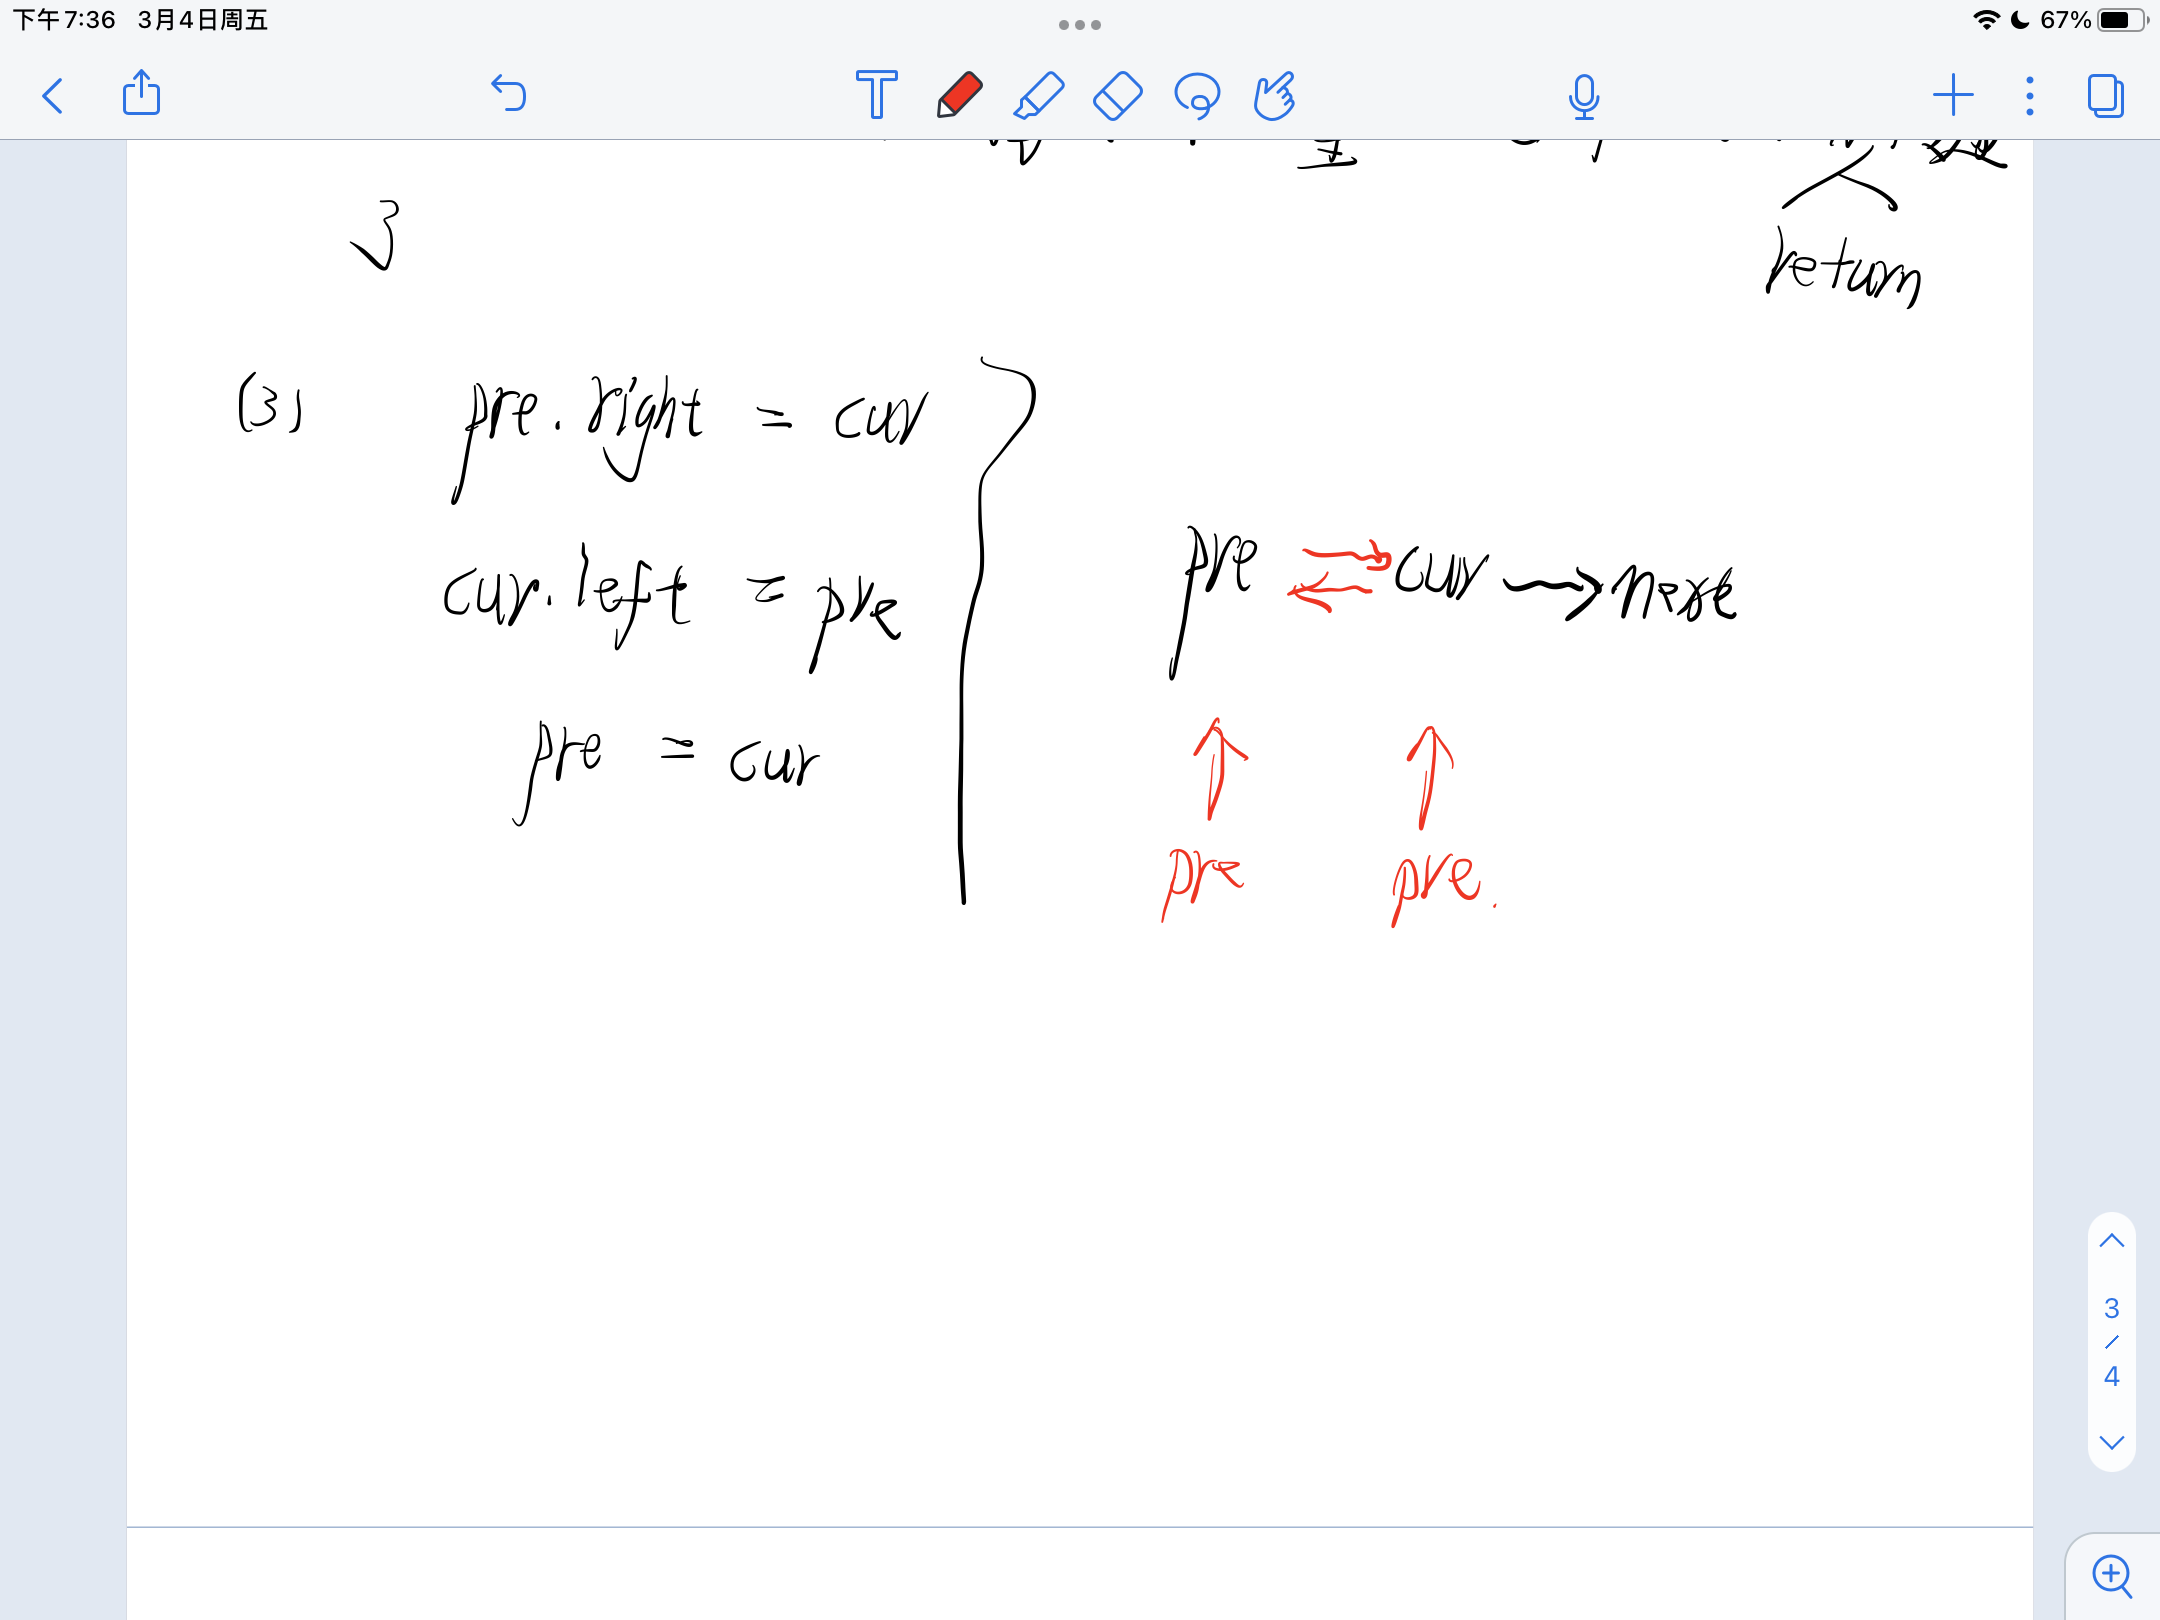 下午7:36 3月4日周五
67%
return
}
(3) pre.right = cur
cur.left = pre
pre = cur
pre cur next
pre pre.
3
4